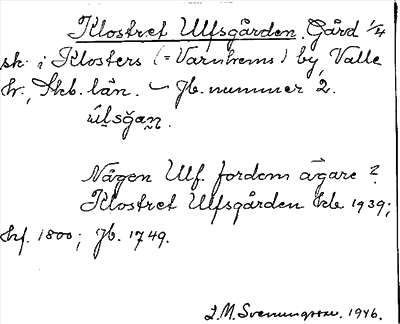 Klostret Ulfsgården. Gård 1/4
sk. i Klosters (= Varnhems) by, Valle
hr., Skb. län. – Jb. nummer 2.
úl̥sg̊an̥.
Någon Ulf fordom ägare?
Klostret Ulfsgården kb. 1939;
hf. 1800; Jb. 1749.
L.M. Svenungsson. 1946.